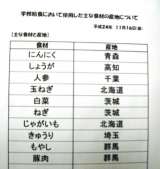 学校給食において使用した主な食材の産地について
平成24年 11月16日(金)
(主な食材と産地)
食材 産地
にんにく 青森
しょうが 高知
人参 千葉
玉ねぎ 北海道
白菜 茨城
ねぎ 茨城
じゃがいも 北海道
きゅうり 埼玉
もやし 群馬
豚肉 群馬